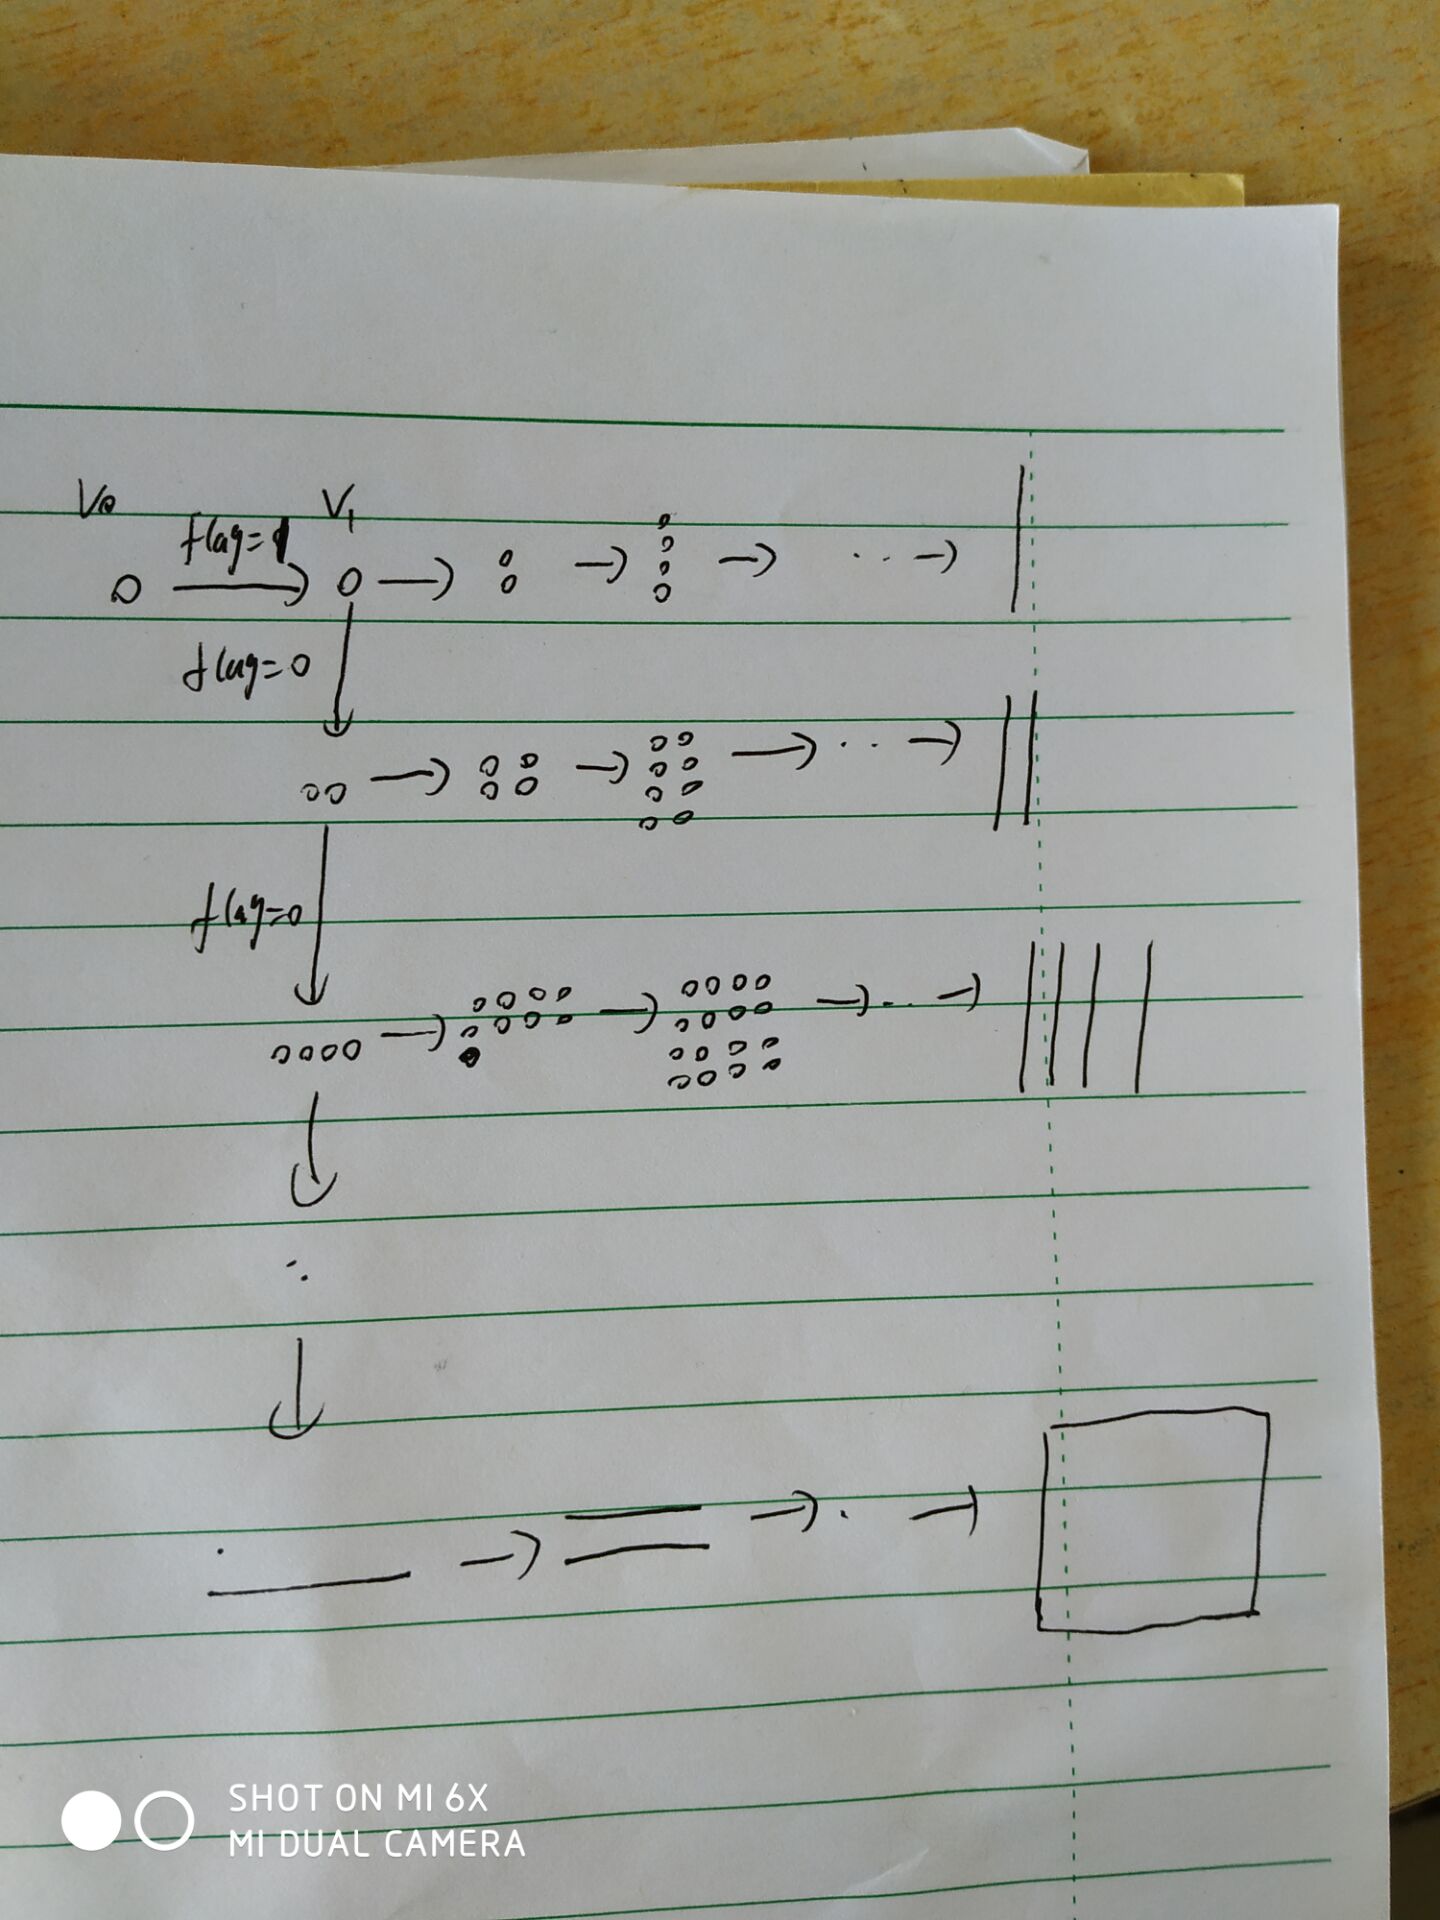 V0 V1
flag=1
flag=0
flag=0
SHOT ON MI 6X
MI DUAL CAMERA